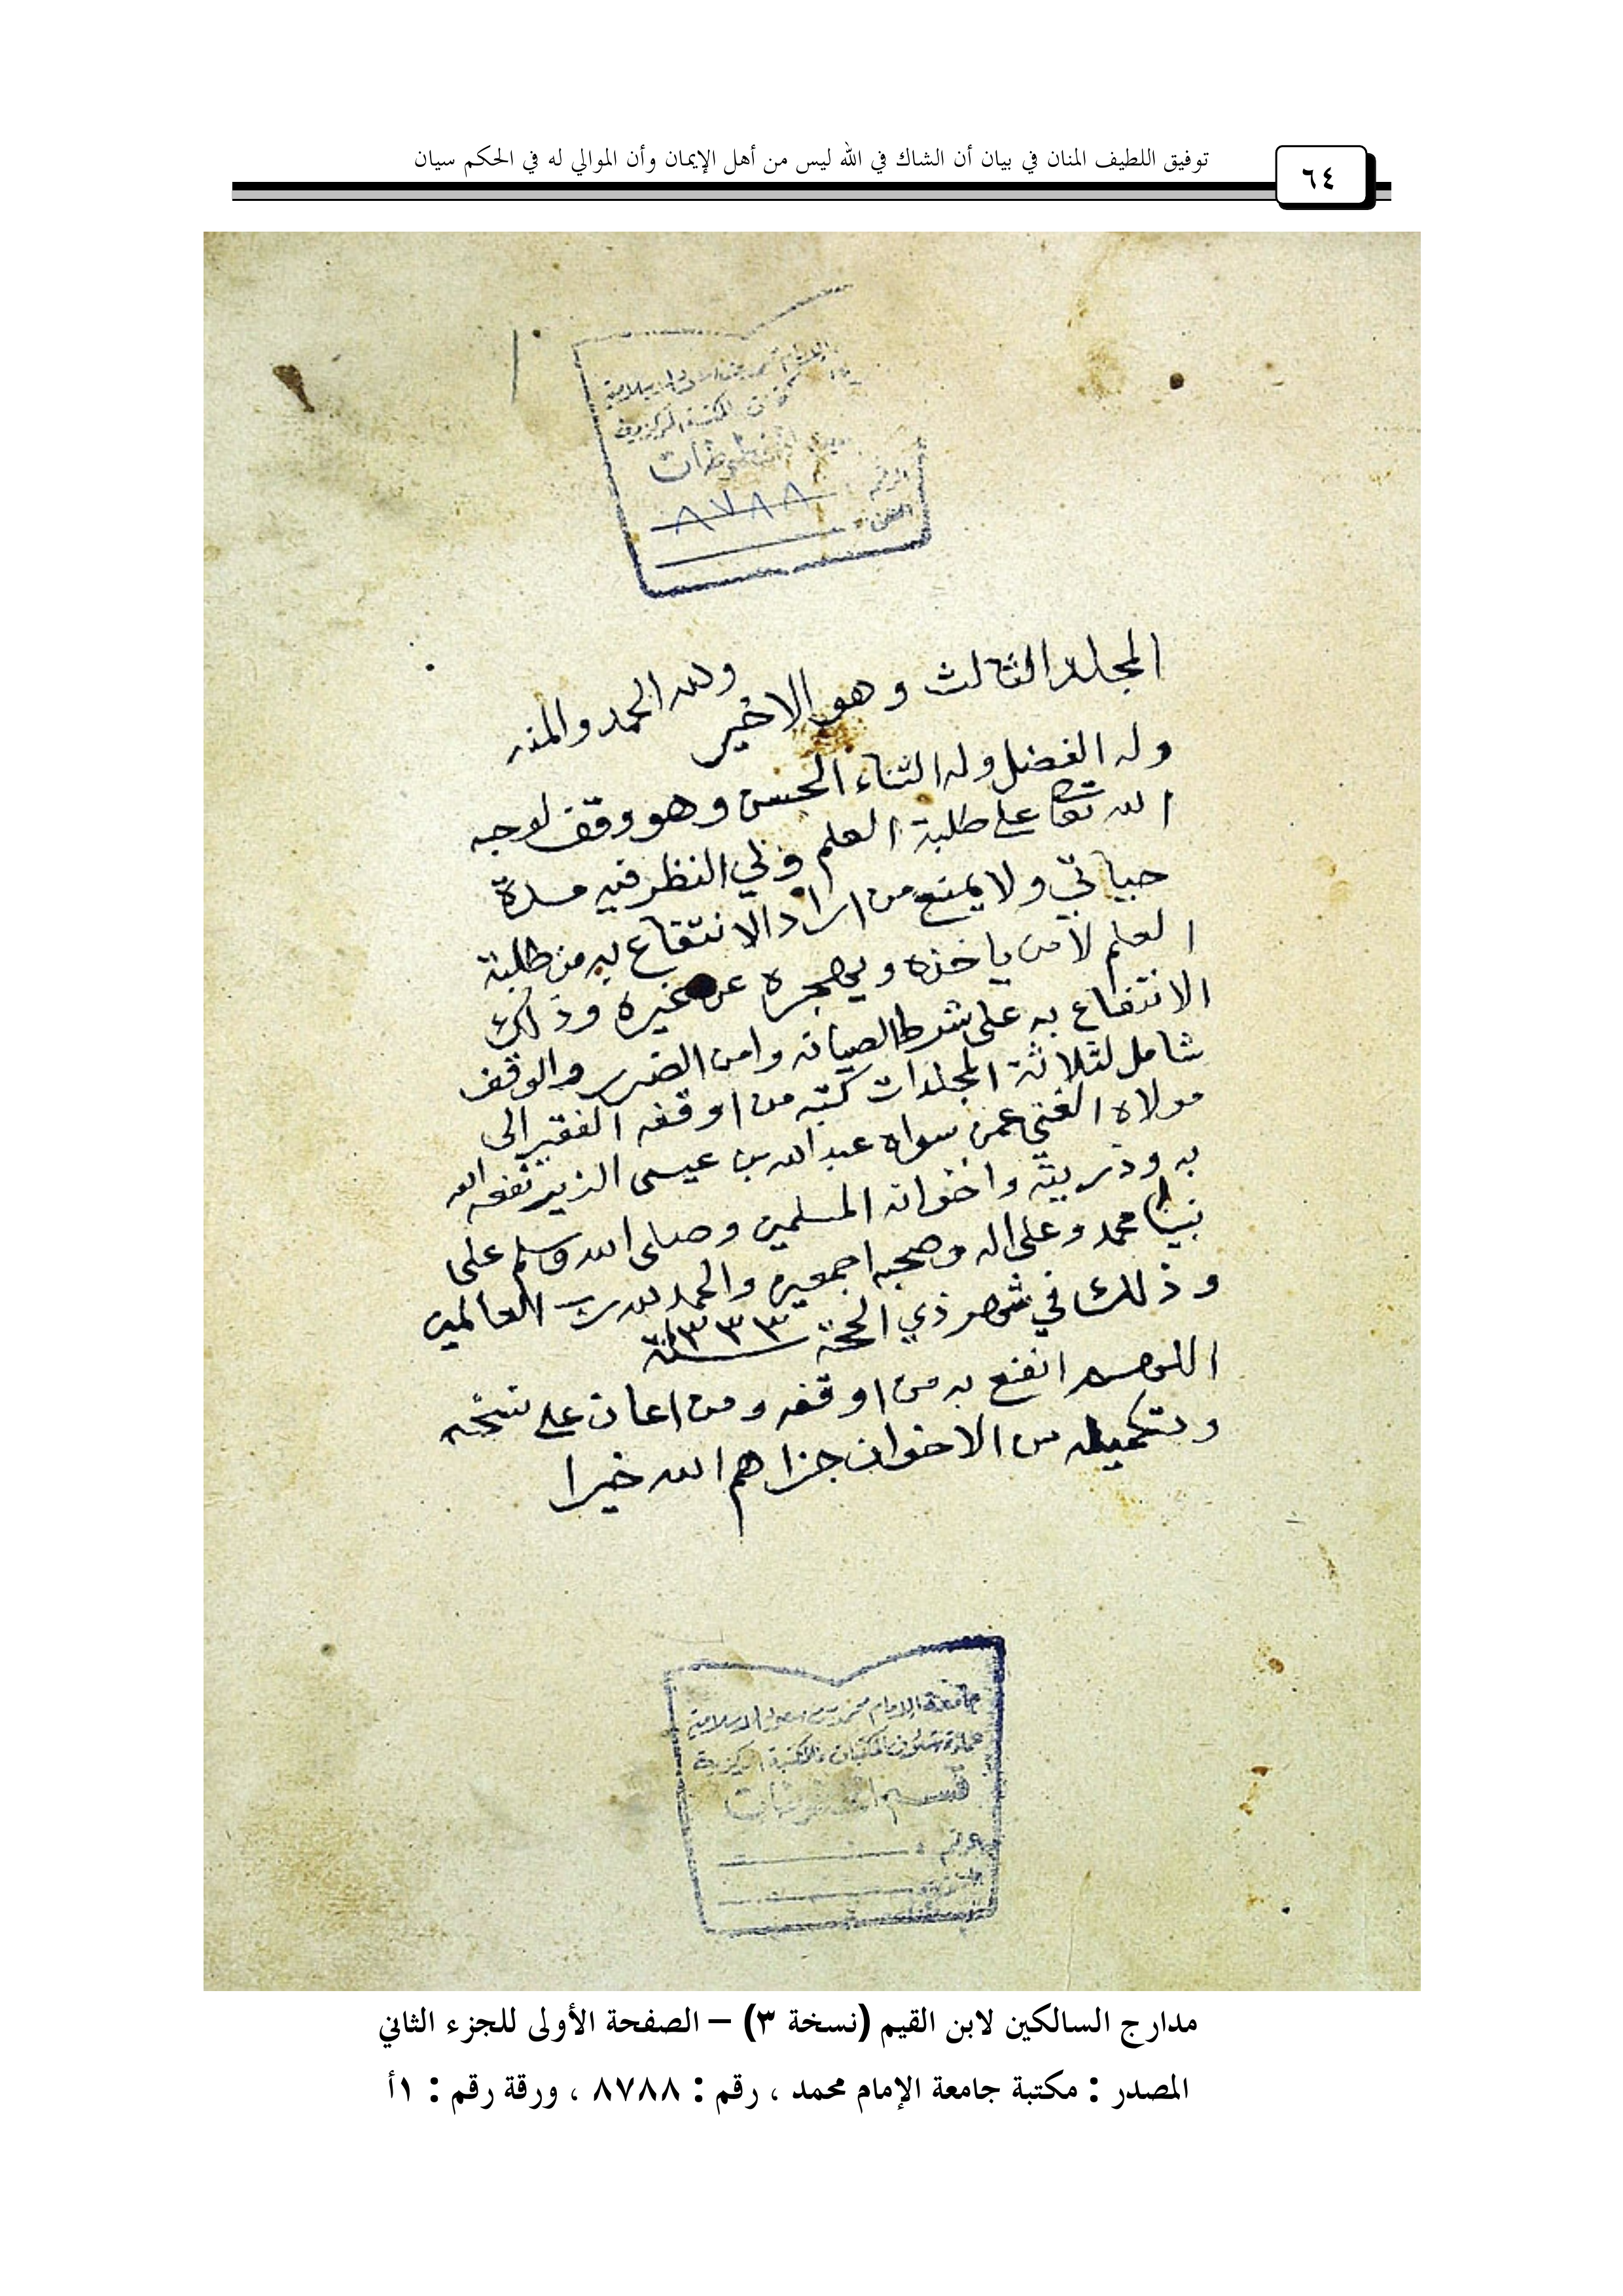 توفيق اللطيف المنان في بيان أن الشاك في الله ليس من أهل الإيمان وأن الموالي له في الحكم سيان
٦٤
المكتبة المركزية
المخطوطات
الرقم ٨٧٨٨
المجلد الثالث وهو الاخير ولله الحمد والمنه
وله الفضل وله الثناء الحسن وهو وقف لوجه
الله تعا على طلبة العلم ولي النظر فيه مدة
حياتي ولا يمنع من اراد الانتفاع به من طلبة
العلم لا من ياخذه ويهجره عن غيره وذلك
الانتفاع به على شرط الصيانه وامن الضرر والوقف
شامل لثلاثة المجلدات كتبه من اوقفه الفقير الى
مولاه الغني عمن سواه عبد الله بن عيسى الزير نفعه الله
به وذريته واخوانه المسلمين وصلى الله وسلم على
نبينا محمد وعلى اله وصحبه اجمعين والحمد لله رب العالمين
وذلك في شهر ذي الحجة سنة ١٣٣٣
اللهم انفع به من اوقفه ومن اعان على نسخه
وتكميله من الاخوان جزاهم الله خيرا
جامعة الإمام محمد بن سعود الإسلامية
عمادة شئون المكتبات المكتبة المركزية
قسم المخطوطات
الرقم
مدارج السالكين لابن القيم (نسخة ٣) – الصفحة الأولى للجزء الثاني
المصدر : مكتبة جامعة الإمام محمد ، رقم : ٨٧٨٨ ، ورقة رقم : ١أ